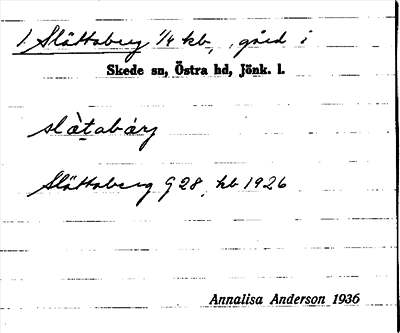 1. Slättaberg 1/4 kb, gård i
Skede sn, Östra hd, Jönk. l.
slàtabárj
Slättaberg G 28, kb 1926
Annalisa Anderson 1936